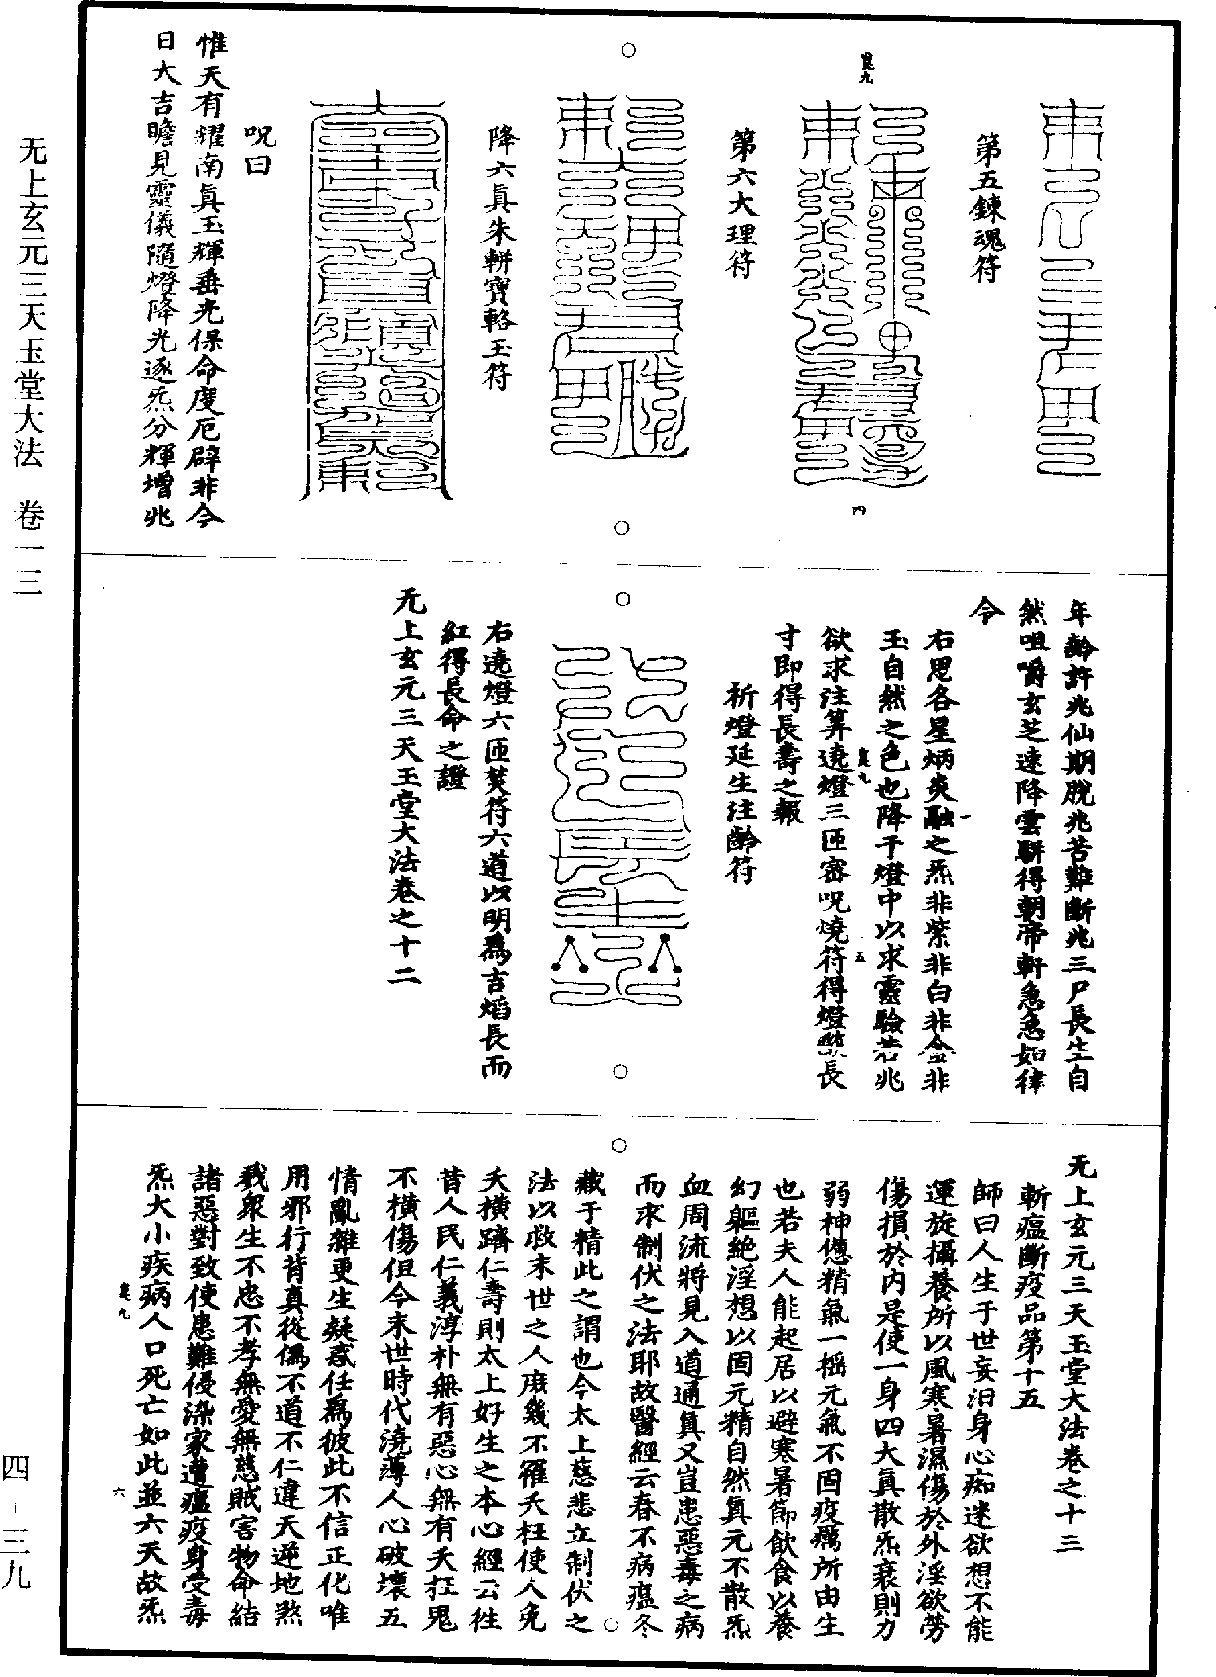 第五鍊魂符
第六大理符
降六真朱軿寶輅玉符
呪曰
惟天有耀南真玉輝垂光保命度厄辟非令
日大吉瞻見靈儀隨燈降光逐炁分輝增兆
年齡許兆仙期脫兆苦難斷兆三尸長生自
然咀嚼玄芝速降雲軿得朝帝軒急急如律
令
右思各星炳炎融之炁非紫非白非金非
玉自然之色也降于燈中以求靈驗若兆
欲求注筭遶燈三匝密呪燒符得燈㷔長
寸即得長壽之報
祈燈延生注齡符
右遶燈六匝焚符六道以明為吉焰長而
紅得長命之證
无上玄元三天玉堂大法卷之十二
无上玄元三天玉堂大法卷之十三
斬瘟斷疫品第十五
師曰人生于世妄汨身心痴迷欲想不能
運旋攝養所以風寒暑濕傷於外淫欲勞
傷損於內是使一身四大真散炁衰則力
弱神憊精氣一搖元氣不固疫癘所由生
也若夫人能起居以避寒暑節飲食以養
幻軀絕淫想以固元精自然真元不散炁
血周流將見入道通真又豈患惡毒之病
而求制伏之法耶故醫經云春不病瘟冬
藏于精此之謂也今太上慈悲立制伏之
法以救末世之人庶幾不罹夭枉使人免
夭橫躋仁壽則太上好生之本心經云往
昔人民仁義淳朴無有惡心無有夭枉鬼
不橫傷但今末世時代澆薄人心破壞五
情亂雜更生疑惑任為彼此不信正化唯
用邪行背真從偽不道不仁違天逆地煞
戮眾生不忠不孝無愛無慈賊害物命結
諸惡對致使患難侵染家遭瘟疫身受毒
炁大小疾病人口死亡如此並六天故炁
无上玄元三天玉堂大法 卷一三
四-三九